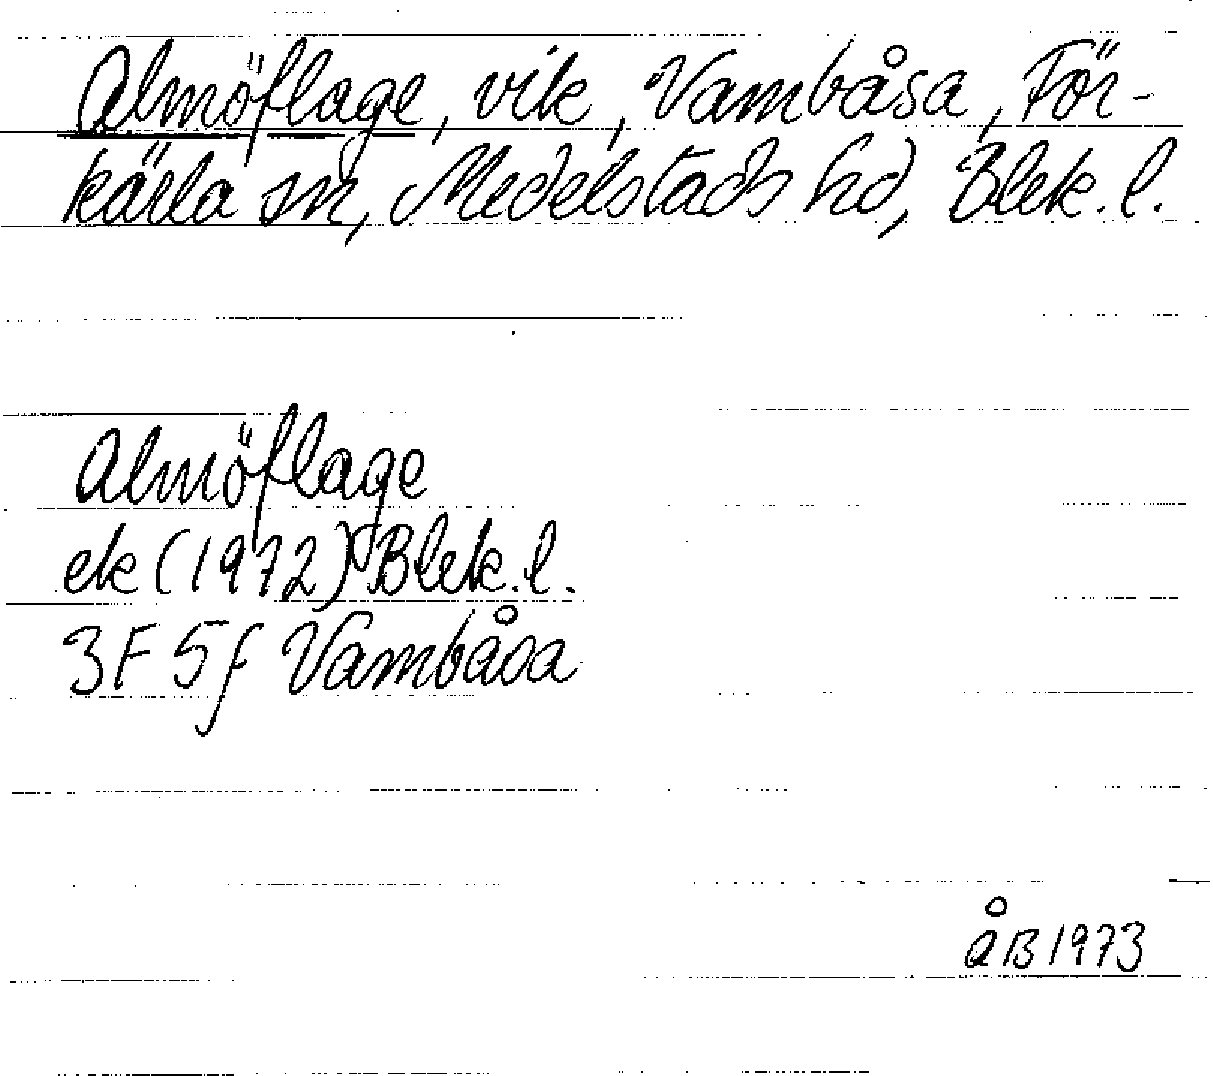 Almöflage, vik, Vambåsa, För-
kärla sn, Medelstads hd, Blek. l.
Almöflage
ek (1972) Blek. l.
3F 5f Vambåsa
ÅB 1973